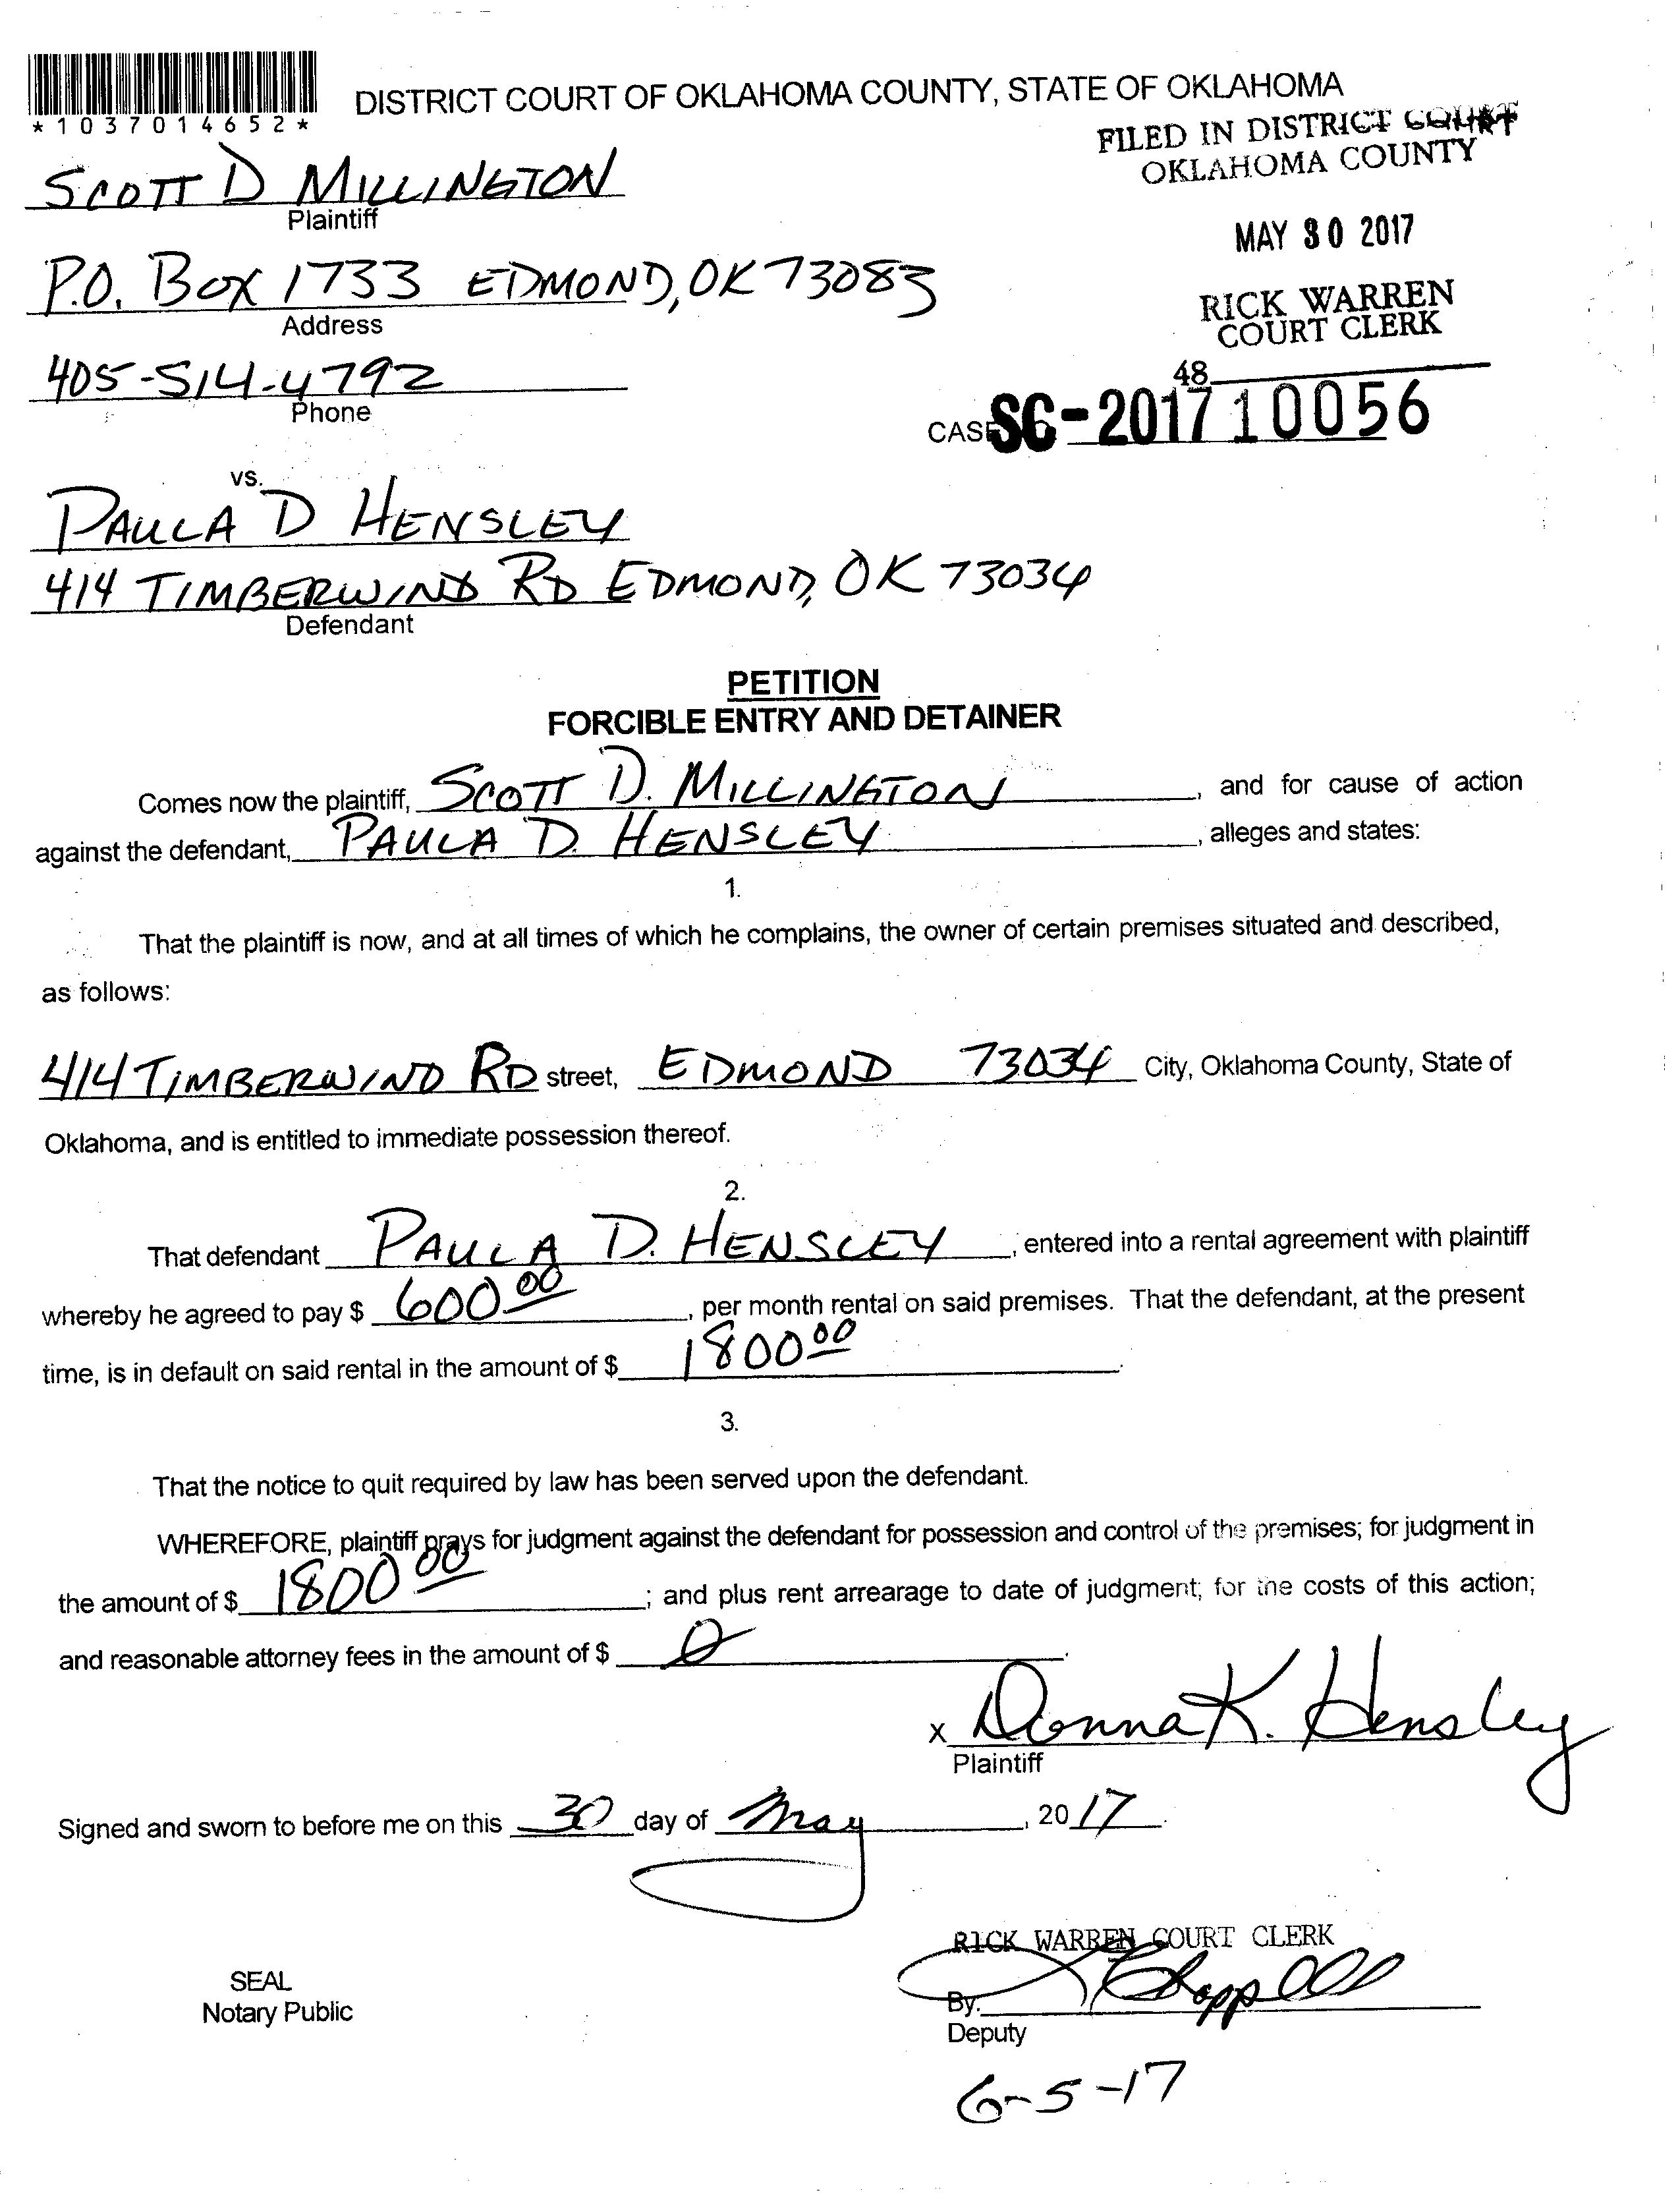 *1037014652*
DISTRICT COURT OF OKLAHOMA COUNTY, STATE OF OKLAHOMA
FILED IN DISTRICT COURT
OKLAHOMA COUNTY
SCOTT D MILLINGTON
Plaintiff
MAY 30 2017
P.O. BOX 1733 EDMOND, OK 73083
Address
RICK WARREN
COURT CLERK
405-514-4792
Phone
48
CASE SC-2017 10056
vs.
PAULA D HENSLEY
414 TIMBERWIND RD EDMOND, OK 73034
Defendant
PETITION
FORCIBLE ENTRY AND DETAINER
Comes now the plaintiff, SCOTT D. MILLINGTON, and for cause of action
against the defendant, PAULA D. HENSLEY, alleges and states:
1.
That the plaintiff is now, and at all times of which he complains, the owner of certain premises situated and described,
as follows:
414 TIMBERWIND RD street, EDMOND 73034 City, Oklahoma County, State of
Oklahoma, and is entitled to immediate possession thereof.
2.
That defendant PAULA D. HENSLEY, entered into a rental agreement with plaintiff
whereby he agreed to pay $ 600.00, per month rental on said premises. That the defendant, at the present
time, is in default on said rental in the amount of $ 1800 00.
3.
That the notice to quit required by law has been served upon the defendant.
WHEREFORE, plaintiff prays for judgment against the defendant for possession and control of the premises; for judgment in
the amount of $ 1800 00; and plus rent arrearage to date of judgment; for the costs of this action;
and reasonable attorney fees in the amount of $ 0.
x Donna K. Hensley
Plaintiff
Signed and sworn to before me on this 30 day of May, 2017.
RICK WARREN COURT CLERK
SEAL
Notary Public
By:
Deputy
6-5-17